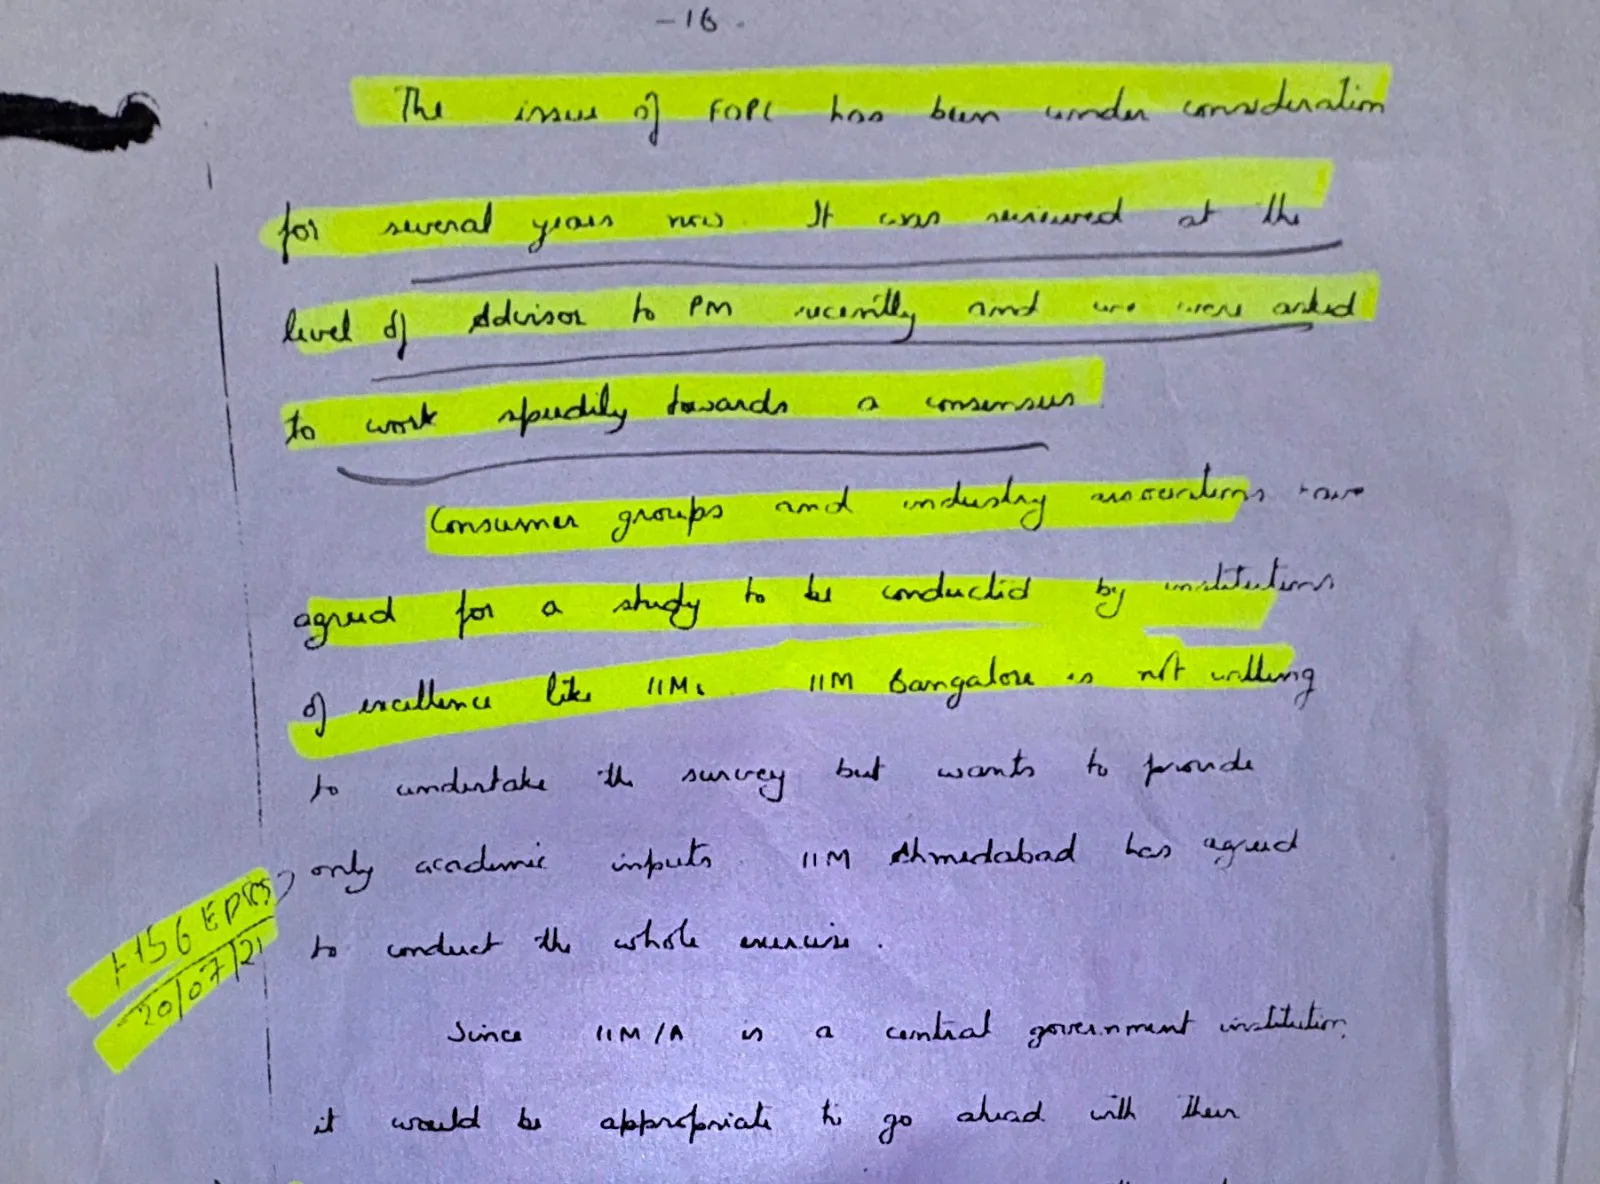 -16.
The issue of FOPL has been under consideration
for several years now. It was reviewed at the
level of Advisor to PM recently and we were asked
to work speedily towards a consensus.
Consumer groups and industry associations have
agreed for a study to be conducted by institutions
of excellence like IIMs. IIM Bangalore is not willing
to undertake the survey but wants to provide
only academic inputs. IIM Ahmedabad has agreed
to conduct the whole exercise.
20/07/21
Since IIM/A is a central government institution,
it would be appropriate to go ahead with their